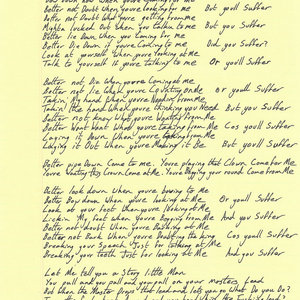 Better not Doubt when you're looking for me But youll Suffer
Better not Doubt what you're getting from me
Mighta looked Out when you talkin to me But you Suffer
Better lie Down when you coming for me
Better Die Down if you're coming for me Did you Suffer?
Look at yourself when you're looking at me
Talk to yourself if you're talking to me Or youll Suffer
Better not Die when you're Coming at me
Better not lie when you're me or youll Suffer
Takin My hand when you're from me
Takin the hand when you're taking you Need But you Suffer
Better not know what you're wanting from me
Better Want what you're taking from me Cos youll Suffer
Laying it Down when you're making for me
Laying it Out when you're Making it Be But youll Suffer
Better pipe Down Come to me. You're playing that Clown Come for Me
You're wanting this Crown Come at Me. You're begging your round Come from Me
Better look down when you're bowing to me
Better Bow down when you're looking at Me Or youll Suffer
Look at your feet when you're looking at Me
Lickin My boot when you're Begging from Me And you Suffer
Better not doubt when you're at Me
Better not Bark when you're the king Cos youll Suffer
Breaking your Speech Just for talking at Me
Breaking your teeth Just for looking at Me And you Suffer
Let Me tell you a Story little Man
You pull and you pull and you pull on your masters hand
But when the Master Drops that leash and lets you go What Do you Do?